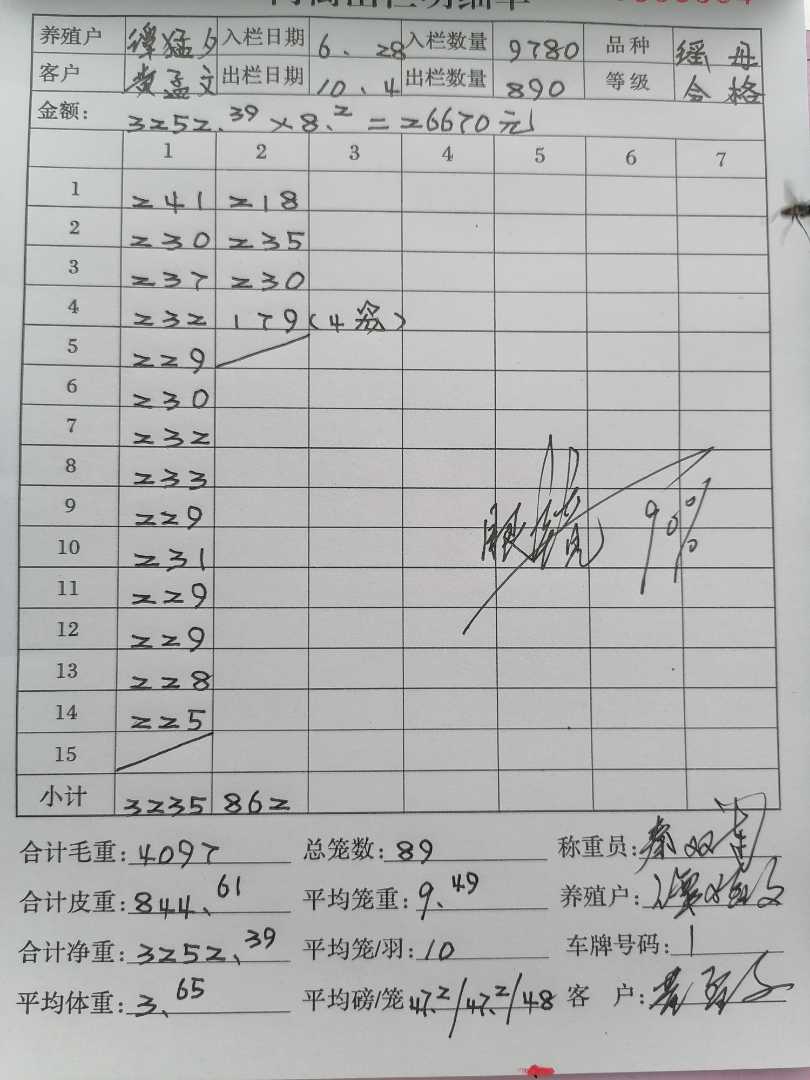 养殖户 谭猛夕 入栏日期 6.28 入栏数量 9780 品种 瑶母
客户 黄孟文 出栏日期 10.4 出栏数量 890 等级 合格
金额: 3252.39×8.2=26670元
1 2 3 4 5 6 7
1 241 218
2 230 235
3 237 230
4 232 179(4笼)
5 229
6 230
7 232
8 233
9 229
10 231
11 229
12 229
13 228
14 225
15
90%
小计 3235 862
合计毛重: 4097 总笼数: 89 称重员:
合计皮重: 844.61 平均笼重: 9.49 养殖户:
合计净重: 3252.39 平均笼/羽: 10 车牌号码: 1
平均体重: 3.65 平均磅/笼 47.2/47.2/48 客 户: